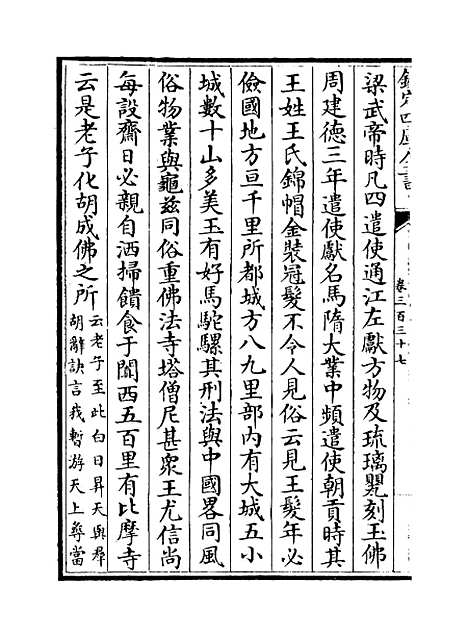 欽定四庫全書
卷三百三十七
梁武帝時凡四遣使通江左獻方物及琉璃甖刻玉佛
周建德三年遣使獻名馬隋大業中頻遣使朝貢時其
王姓王氏錦帽金裝冠髮不令人見俗云見王髮年必
儉國地方亘千里所都城方八九里部内有大城五小
城數十山多美玉有好馬駝騾其刑法與中國畧同風
俗物業與龜兹同俗重佛法寺塔僧尼甚衆王尤信尚
每設齋日必親自洒掃饋食于闐西五百里有比摩寺
云是老子化胡成佛之所
云老子至此白日昇天與羣
胡辭訣言我暫游天上尋當